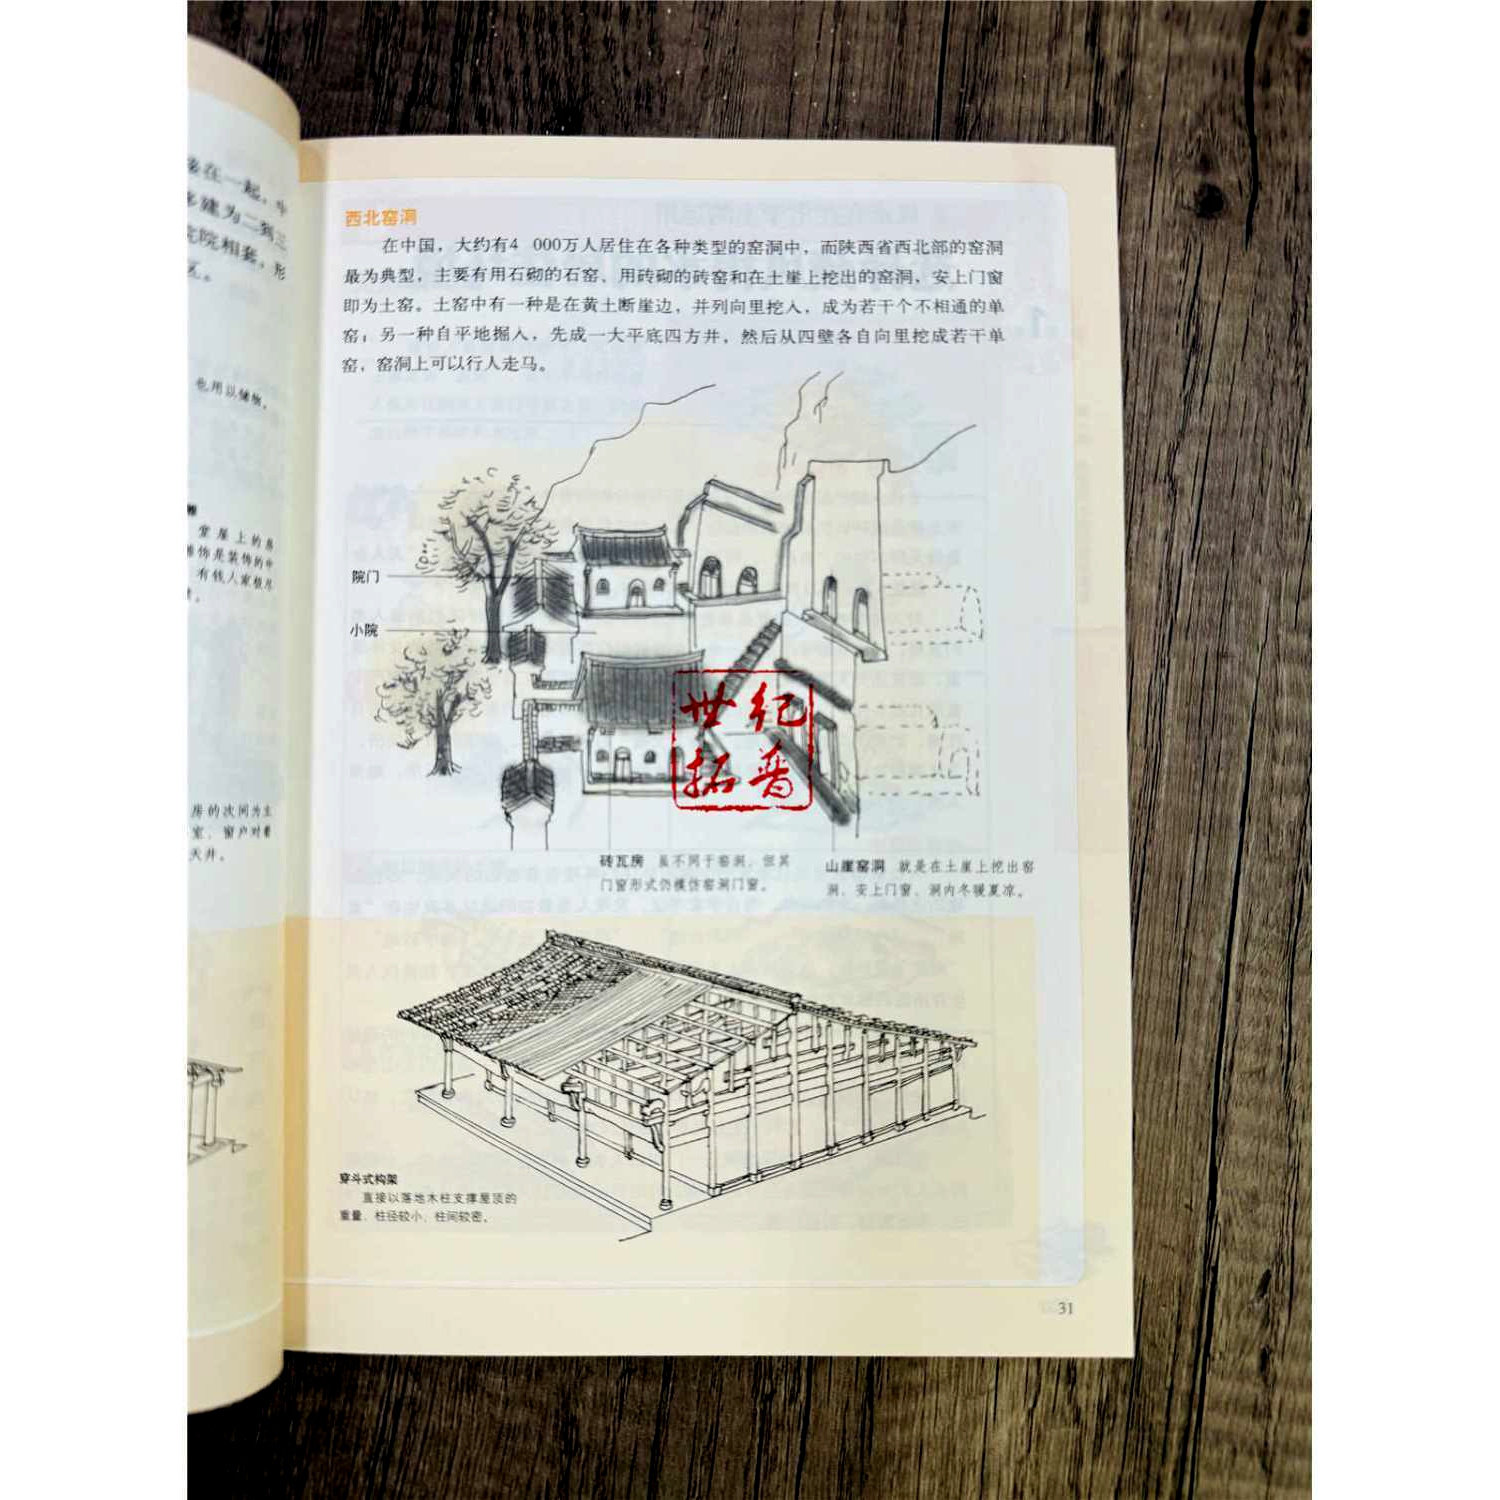 接在一起，中
建为二到三
院相套，形
区。
也用以储物。
雕
堂屋上的各
雕饰是装饰的中
有钱人家极尽
房的次间为主
室，窗户对着
天井。
西北窑洞
在中国，大约有4 000万人居住在各种类型的窑洞中，而陕西省西北部的窑洞
最为典型，主要有用石砌的石窑、用砖砌的砖窑和在土崖上挖出的窑洞，安上门窗
即为土窑。土窑中有一种是在黄土断崖边，并列向里挖入，成为若干个不相通的单
窑；另一种自平地掘入，先成一大平底四方井，然后从四壁各自向里挖成若干单
窑，窑洞上可以行人走马。
院门
小院
世纪
拓普
砖瓦房 虽不同于窑洞，但其
门窗形式仍模仿窑洞门窗。
山崖窑洞 就是在土崖上挖出窑
洞，安上门窗，洞内冬暖夏凉。
穿斗式构架
直接以落地木柱支撑屋顶的
重量，柱径较小，柱间较密。
31